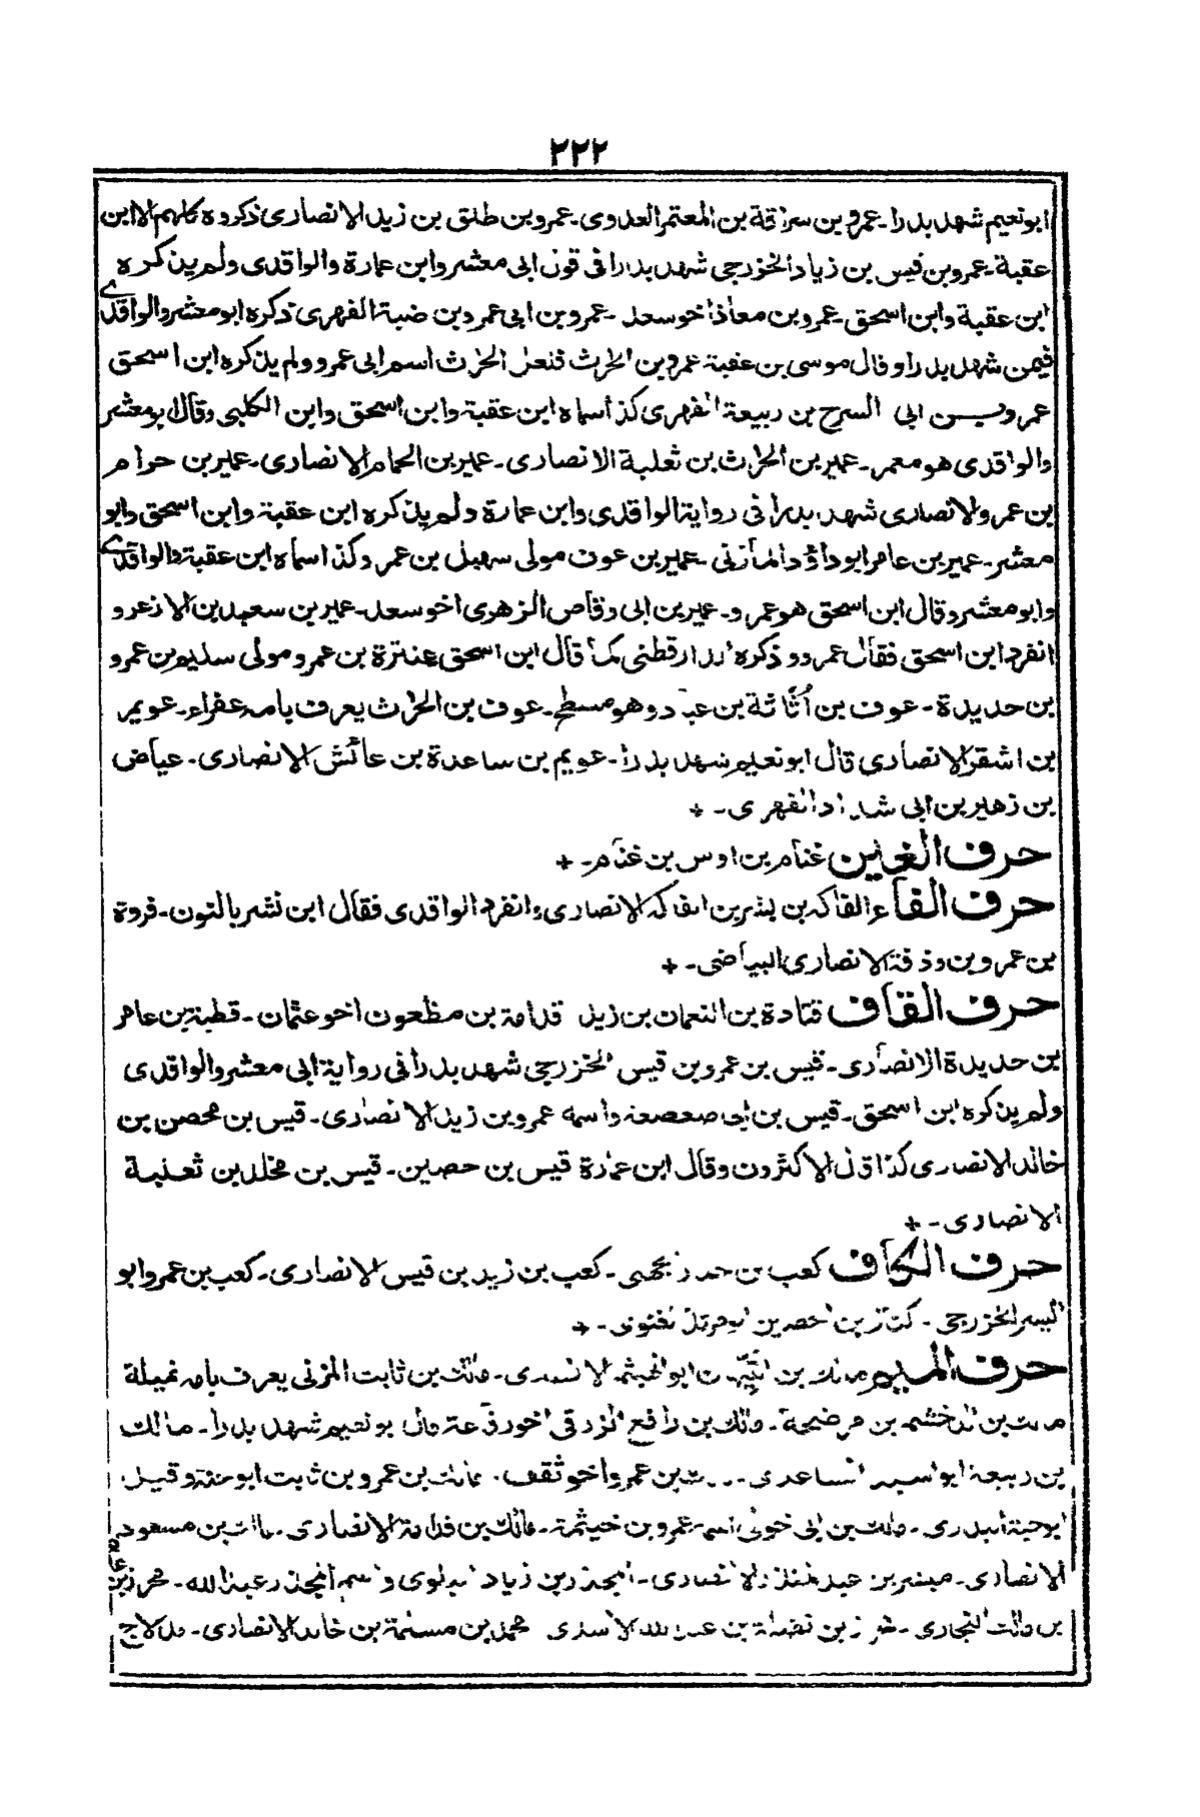 ٢٢٢
ابونعيم شهد بدرا۔ عمرو بن سراقة بن المعتمر العدوى۔ عمرو بن طلق بن زيد الانصارى ذكروه كلهم الا ابن
عقبة۔ عمرو بن قيس بن زياد الخزرجى شهد بدرا فى قول ابى معشر وابن عمارة والواقدى ولم يذكره
ابن عقبة وابن اسحق۔ عمرو بن معاذ اخو سعد۔ عمرو بن ابى عمرو بن ضبة الفهرى ذكره ابو معشر والواقدى
فيمن شهد بدرا وقال موسى بن عقبة عمرو بن الحرث فلعل الحرث اسم ابى عمرو ولم يذكره ابن اسحق
عمرو بن ابى السرح بن ربيعة الفهرى كذا سماه ابن عقبة وابن اسحق وابن الكلبى وقال ابو معشر
والواقدى هو معمر۔ عمير بن الحرث بن ثعلبة الانصارى۔ عمير بن الحمام الانصارى۔ عمير بن حرام
بن عمرو الانصارى شهد بدرا فى رواية الواقدى وابن عمارة ولم يذكره ابن عقبة وابن اسحق وابو
معشر۔ عمير بن عامر ابو داؤد المازنى۔ عمير بن عوف مولى سهيل بن عمرو كذا سماه ابن عقبة والواقدى
وابو معشر وقال ابن اسحق هو عمرو۔ عمير بن ابى وقاص الزهرى اخو سعد۔ عمير بن سعيد بن الازعر و
انفرد ابن اسحق فقال عمرو وذكره الدارقطنى كذا قال ابن اسحق عنترة بن عمرو مولى سليم بن عمرو
بن حديدة۔ عوف بن أُثاثة بن عباد وهو مسطح۔ عوف بن الحرث يعرف بامه عفراء۔ عويمر
بن اشقر الانصارى قال ابو نعيم شهد بدرا۔ عويم بن ساعدة بن عائش الانصارى۔ عياض
بن زهير بن ابى شداد الفهرى۔ +
حرف الغين غنام بن اوس بن غنام۔ +
حرف الفاء الفاكه بن بشر بن الفاكه الانصارى وانفرد الواقدى فقال ابن نشر بالنون۔ فروة
بن عمرو بن وذفة الانصارى البياضى۔ +
حرف القاف قتادة بن النعمان بن زيد قدامة بن مظعون اخو عثمان۔ قطبة بن عامر
بن حديدة الانصارى۔ قيس بن عمرو بن قيس الخزرجى شهد بدرا فى رواية ابى معشر والواقدى
ولم يذكره ابن اسحق۔ قيس بن ابى صعصعة واسمه عمرو بن زيد الانصارى۔ قيس بن محصن بن
خالد الانصارى كذا قال الاكثرون وقال ابن عمارة قيس بن حصين۔ قيس بن مخلد بن ثعلبة
الانصارى۔ +
حرف الكاف كعب بن جماز الجهنى۔ كعب بن زيد بن قيس الانصارى۔ كعب بن عمرو ابو
اليسر الخزرجى۔ كناز بن الحصين ابو مرثد الغنوى۔ +
حرف الميم مالك بن التيهان ابو الهيثم الانصارى۔ مالك بن ثابت المزنى يعرف بامه نميلة
مالك بن الدخشم بن مرضخة۔ مالك بن رافع الزرقى اخو رفاعة قال ابو نعيم شهد بدرا۔ مالك
بن ربيعة ابو اسيد الساعدى۔ مالك بن عمرو اخو ثقف۔ مالك بن عمرو بن ثابت ابو حنة وقيل
ابو حبة البدرى۔ مالك بن ابى خولى اسمه عمرو بن خيثمة۔ مالك بن قدامة الانصارى۔ مالك بن مسعود
الانصارى۔ مبشر بن عبد المنذر الانصارى۔ المجذر بن زياد البلوى واسم المجذر عبد الله۔ محرز بن عامر
بن مالك النجارى۔ محرز بن نضلة بن عبد الله الاسدى محمد بن مسلمة بن خالد الانصارى۔ مدلاج